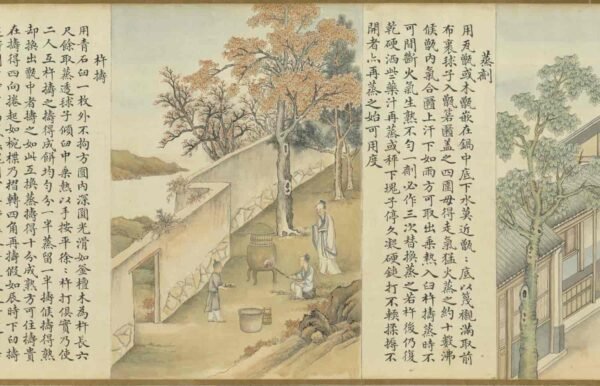 蒸劑
用瓦甑或木甑嵌在鍋中底下水莫近甑〻底以篾襯滿取前
布裹球子入甑若匾蓋之四圍毋得走氣猛火蒸之約十數沸
候甑内氣合匾上汗下如雨方可取出乘熱入臼杵擣蒸時不
可間斷火氣生熟不勻一劑必作三次替換蒸之若杵後仍復
乾硬洒些藥汁再蒸或秤下塊子停久凝硬鎚打不軟揉搓不
開者亦再蒸之始可用度
杵擣
用青石臼一枚外不拘方圓内深圓光滑如釜檀木為杵長六
尺餘取蒸透球子傾臼中乘熱以手按平徐〻杵打俱實乃使
二人互杵擣之擣得成餅均勻分一半蒸留一半擣候擣得熟
却換出甑中者擣之如此互換蒸擣得十分成熟方可住擣貴
在擣得四向捲起如椀樣乃摺轉四角再擣假如辰時下臼擣